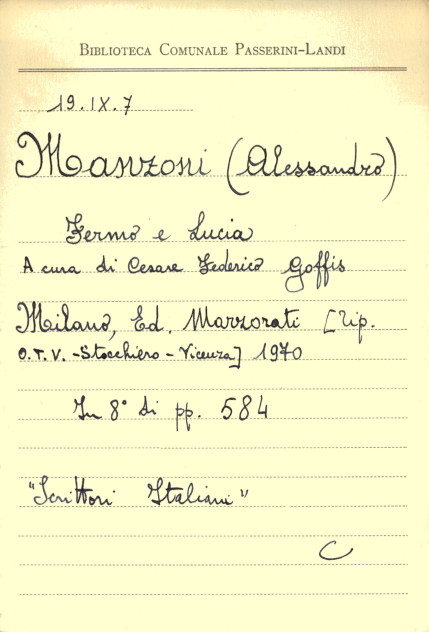 BIBLIOTECA COMUNALE PASSERINI-LANDI
19.IX.7
Manzoni (Alessandro)
Fermo e Lucia
A cura di Cesare Federico Goffis
Milano, Ed. Marzorati [Tip.
O.T.V. - Stocchiero - Vicenza] 1970
In 8° di pp. 584
"Scrittori Italiani"
C